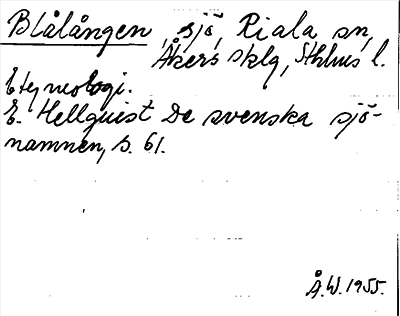 Blålången, sjö, Riala sn,
Åkers sklg, Sthlms l.
Etymologi.
E. Hellquist De svenska sjö-
namnen, s. 61.
Å.W. 1955.